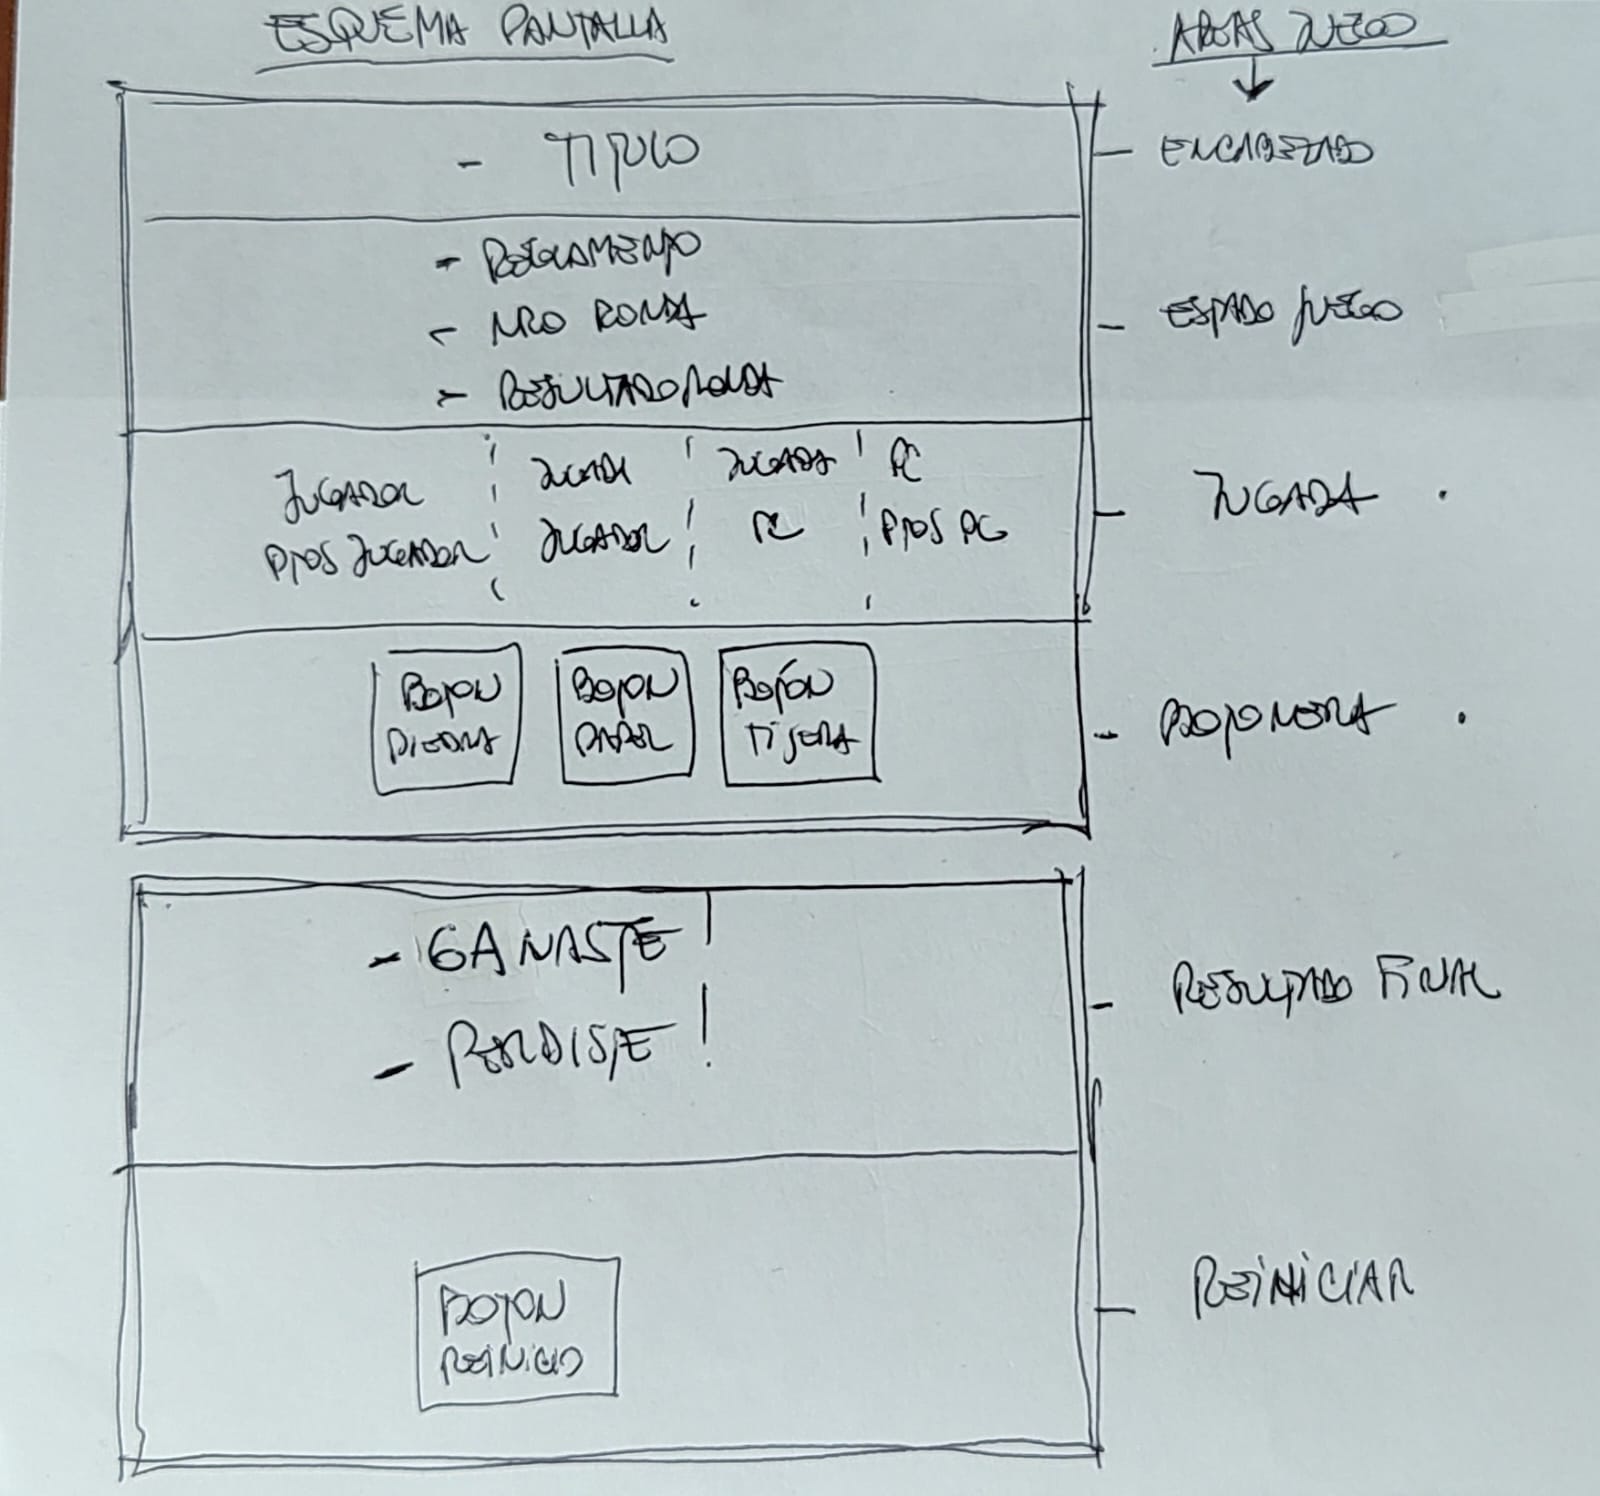 ESQUEMA PANTALLA
AREAS JUEGO
- TITULO
- ENCABEZADO
- REGLAMENTO
- NRO RONDA
- RESULTADO RONDA
- ESTADO JUEGO
JUGADOR
PTOS JUGADOR
JUGADA
JUGADOR
JUGADA
PC
PC
PTOS PC
- JUGADA
BOTON
PIEDRA
BOTON
PAPEL
BOTÓN
TIJERA
- BOTONERA
- GANASTE!
- PERDISTE!
- RESULTADO FINAL
BOTON
REINICIO
- REINICIAR